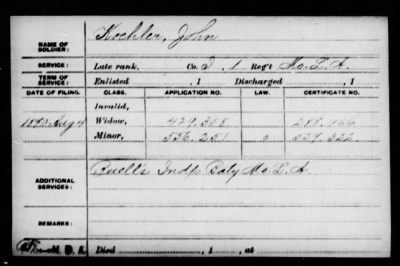 NAME OF SOLDIER: Kochler, John
SERVICE: Late rank, Co. I, 1 Reg't Mo. L. A.
TERM OF SERVICE: Enlisted , 1 Discharged , 1
DATE OF FILING. CLASS. APPLICATION NO. LAW. CERTIFICATE NO.
Invalid,
1890 Aug 4 Widow, 479.308
Minor, 536.251 0 539.322
ADDITIONAL SERVICES: Buell's Indp Baty Mo. L. A.
REMARKS:
Died , 1 , at